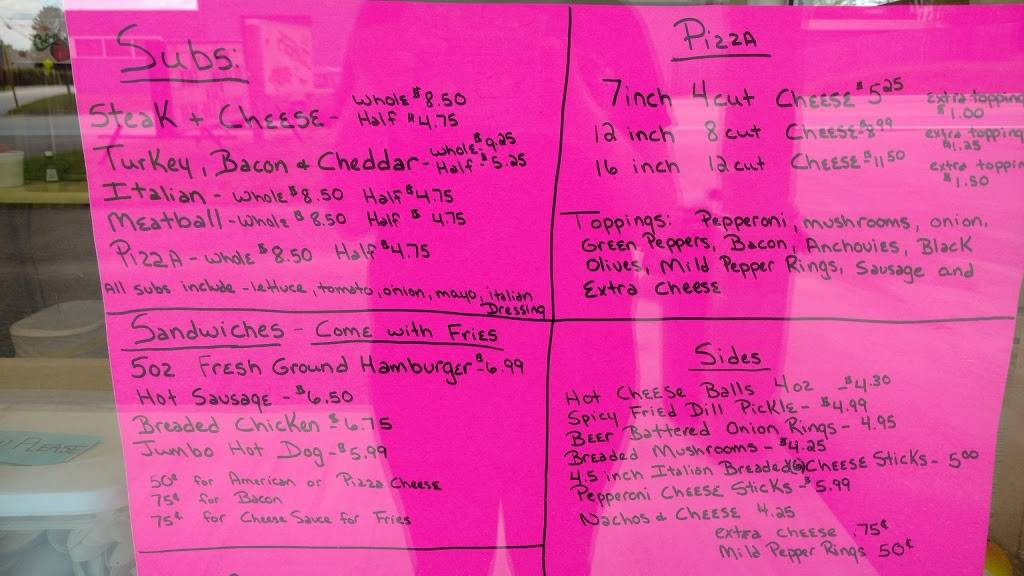 Subs:
Steak + Cheese - Whole $8.50 Half $4.75
Turkey, Bacon & Cheddar - Whole $9.25 Half $5.25
Italian - Whole $8.50 Half $4.75
Meatball - Whole $8.50 Half $4.75
Pizza - Whole $8.50 Half $4.75
All subs include - lettuce, tomato, onion, mayo, italian Dressing
Pizza
7 inch 4 cut Cheese $5.25 Extra topping $1.00
12 inch 8 cut Cheese - $8.99 extra topping $1.25
16 inch 12 cut Cheese $11.50 extra toppin $1.50
Toppings: Pepperoni, mushrooms, onion,
Green Peppers, Bacon, Anchovies, Black
Olives, Mild Pepper Rings, Sausage and
Extra Cheese
Sandwiches - Come with Fries
5oz Fresh Ground Hamburger - $6.99
Hot Sausage - $6.50
Breaded Chicken $6.75
Jumbo Hot Dog - $5.99
50¢ for American or Pizza Cheese
75¢ for Bacon
75¢ for Cheese Sauce for Fries
Sides
Hot Cheese Balls 4oz - $4.30
Spicy Fried Dill Pickle - $4.99
Beer Battered Onion Rings - 4.95
Breaded Mushrooms - $4.25
4.5 inch Italian Breaded (6) Cheese Sticks - 5.00
Pepperoni Cheese Sticks - $5.99
Nachos & Cheese 4.25
extra cheese .75¢
Mild Pepper Rings 50¢
PLEASE